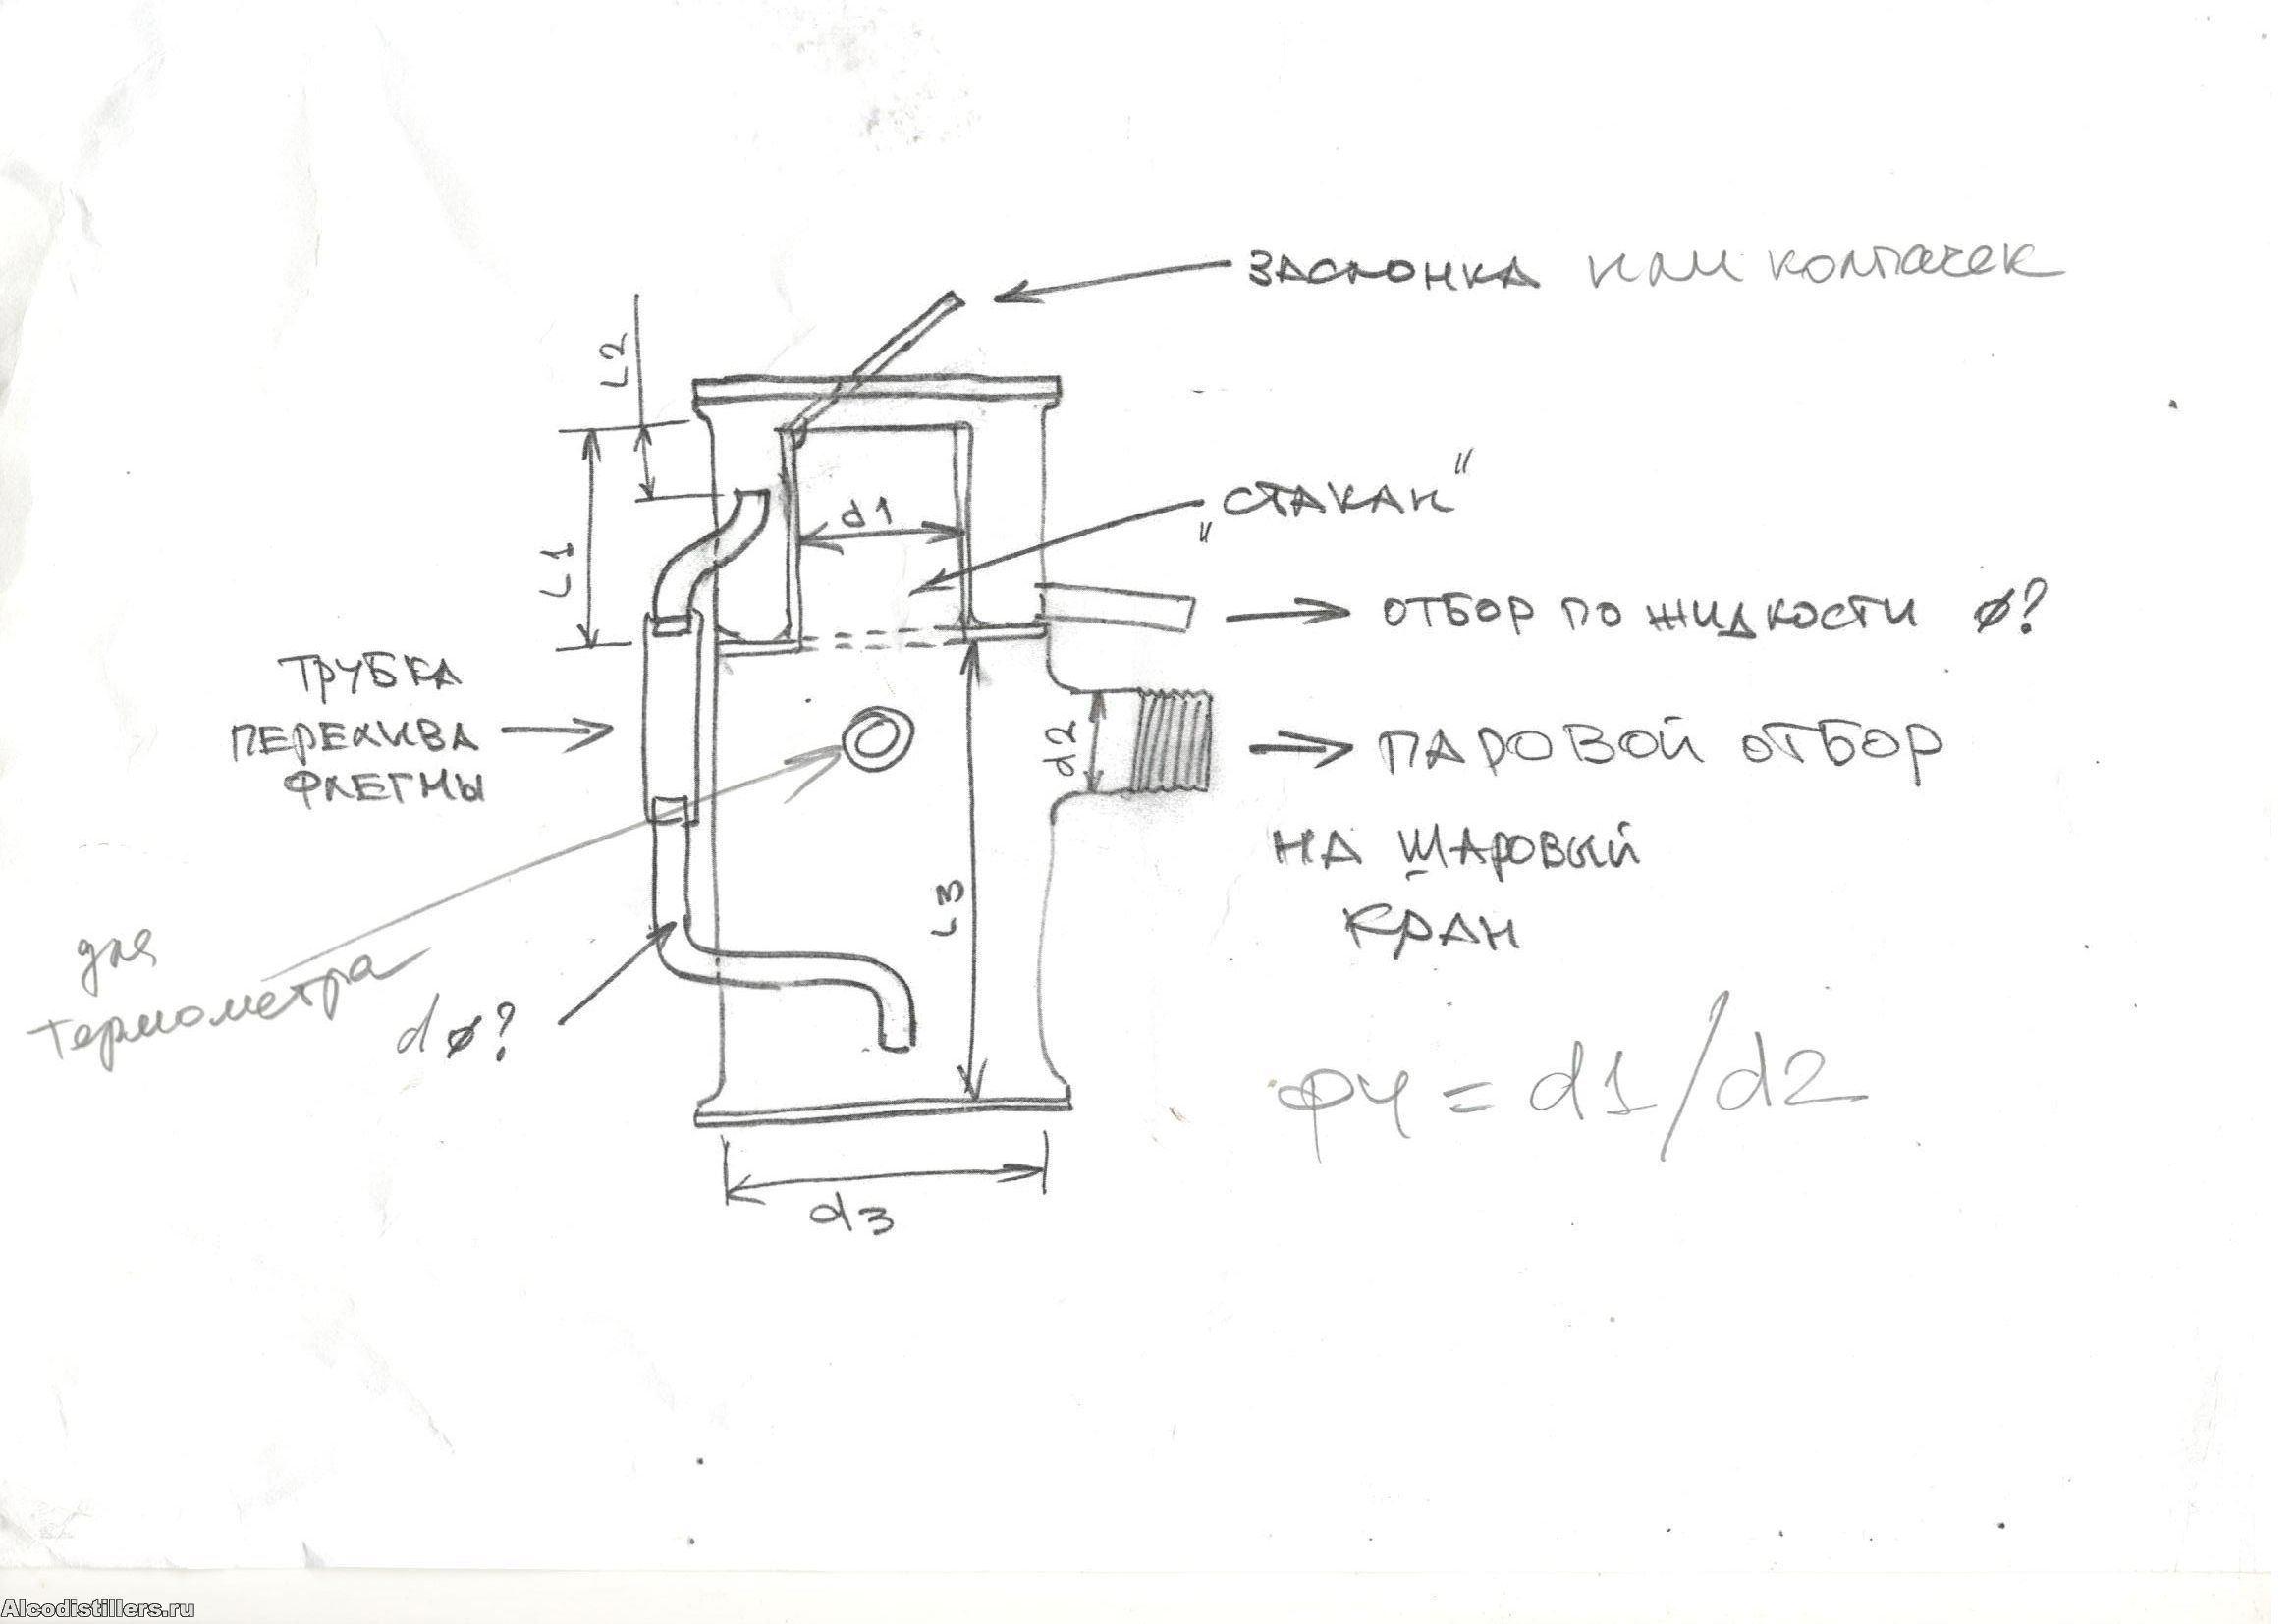 ЗАСЛОНКА или колпачек
L2
"СТАКАН"
d1
L1
ОТБОР ПО ЖИДКОСТИ ø?
ТРУБКА
ПЕРЕЛИВА
ФЛЕГМЫ
d2
ПАРОВОЙ ОТБОР
НА ШАРОВЫЙ
КРАН
L3
для
термометра
d ø?
ФЧ = d1/d2
d3
Alcodistillers.ru